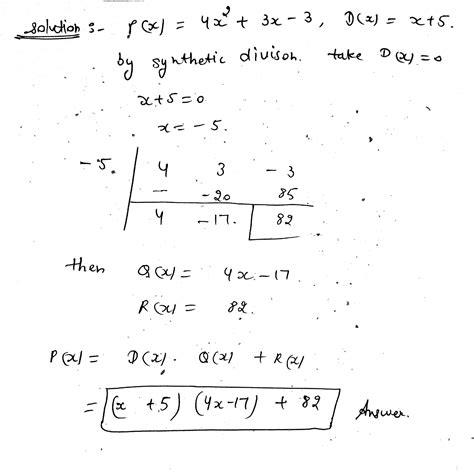 Solution :- P(x) = 4x² + 3x - 3, D(x) = x+5.
by synthetic divison. take D(x) = 0
x+5=0
x = -5.
-5. 4 3 -3
— -20 85
4 -17. 82
then Q(x) = 4x-17
R(x) = 82.
P(x) = D(x). Q(x) + R(x)
= (x +5) (4x-17) + 82 Answer.